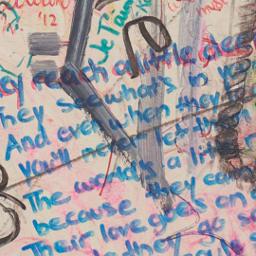 '12
Je T'aim
ey reach a little dee
They see what's in you
And even when they
you'll never let them
The world's a litt
because they can
Their love goes on a
go so